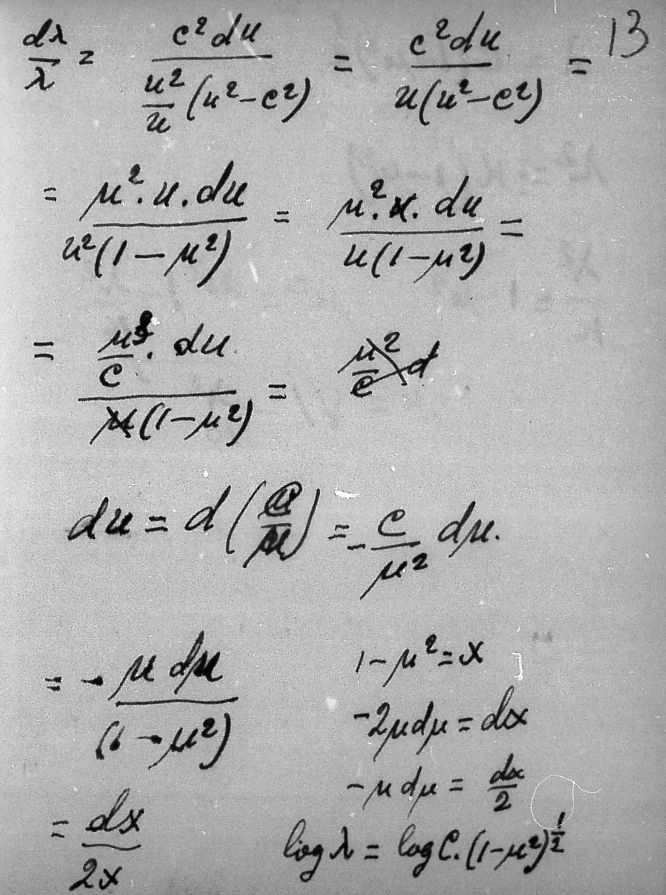 13
dλ/λ = c²du / (u²/u (u²-c²)) = c²du / u(u²-c²) =
= μ².u.du / u²(1-μ²) = μ².du / u(1-μ²) =
= μ³/c . du / (1-μ²) =
du = d(c/μ) = - c/μ² dμ.
= - μ dμ / (1-μ²)
1-μ² = x
-2μdμ = dx
-μdμ = dx/2
= dx/2x
log λ = log C.(1-μ²)^½